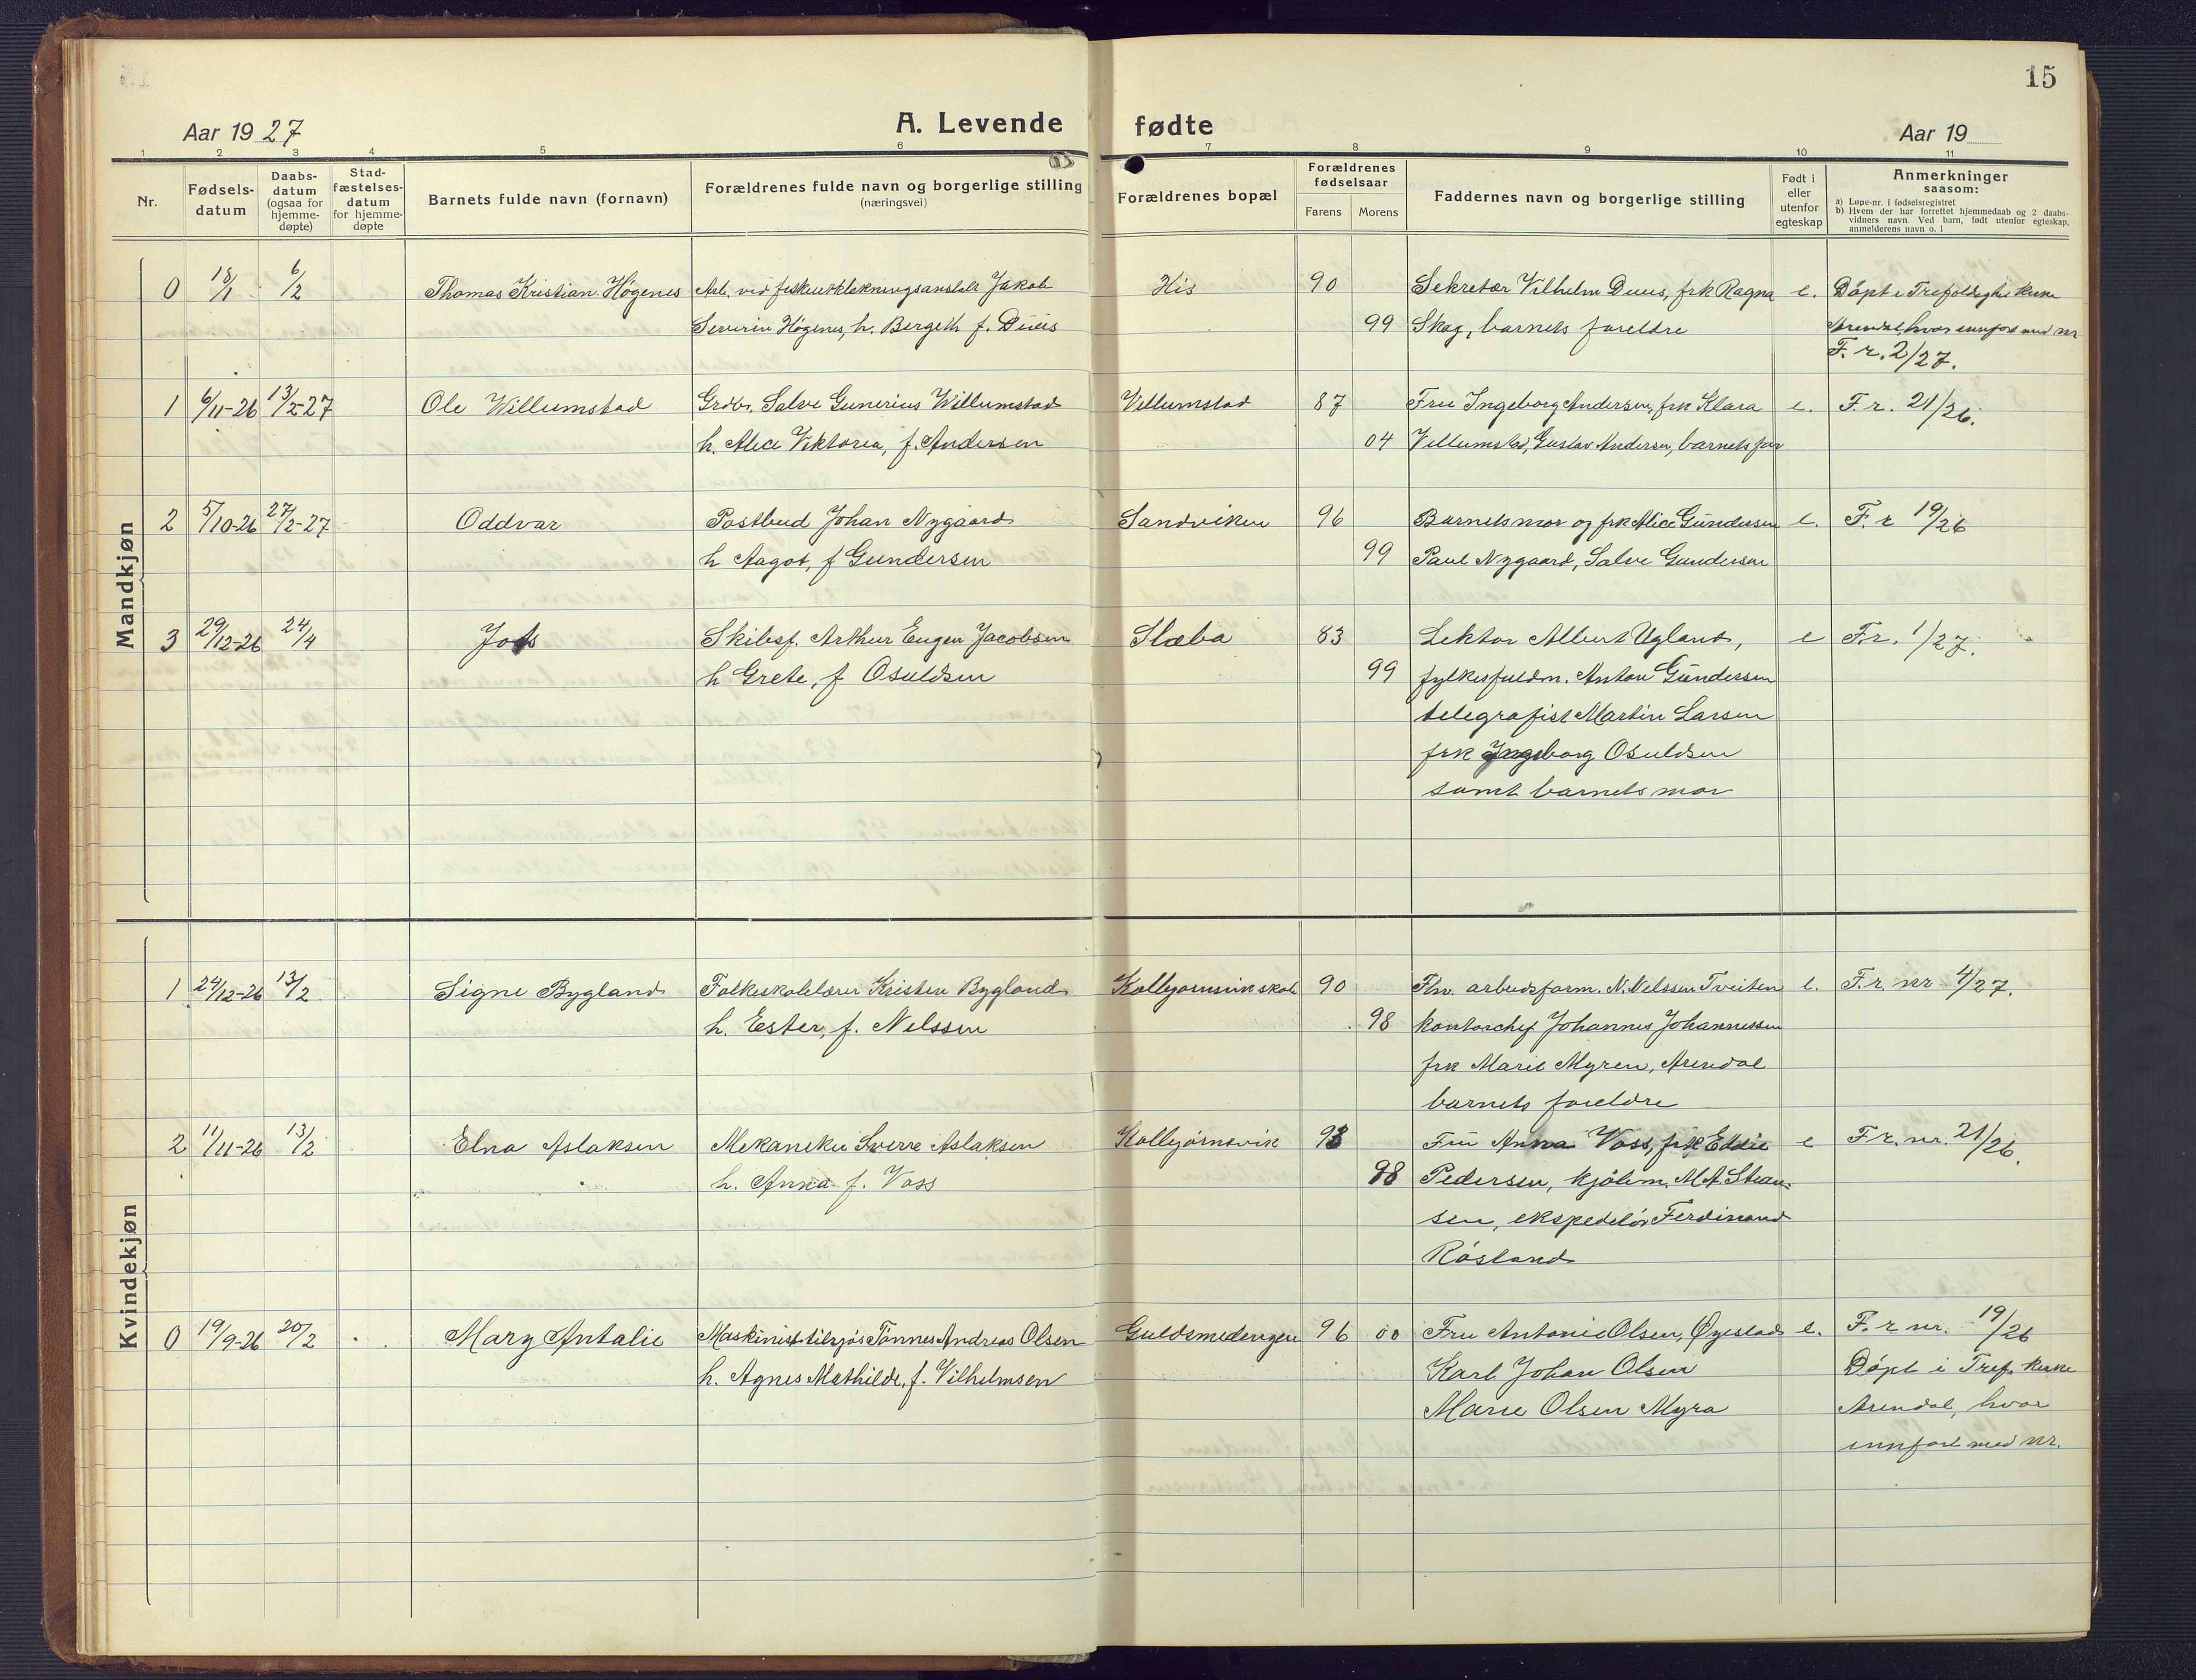 15
Aar 1927
A. Levende fødte
Aar 19
1 2 3 4 5 6 7 8 9 10 11
Nr.
Fødsels-
datum
Daabs-
datum
(ogsaa for
hjemme-
døpte)
Stad-
fæstelses-
datum
for hjemme-
døpte
Barnets fulde navn (fornavn)
Forældrenes fulde navn og borgerlige stilling
(næringsvei)
Forældrenes bopæl
Forældrenes
fødselsaar
Farens Morens
Faddernes navn og borgerlige stilling
Født i
eller
utenfor
egteskap
Anmerkninger
saasom:
a) Løpe-nr. i fødselsregistret
b) Hvem der har forrettet hjemmedaab og 2 daabs-
vidners navn. Ved barn, født utenfor egteskap,
anmelderens navn o. l
Mandkjøn
0 18/1 6/2 Thomas Kristian Högenes Arb. ved Jakob His 90 Sekretær Vilhelm Duus, frk Ragna e. Döpt i Trefoldighet kirke
Severin Högenes, h. Bergeth f. Duus 99 Skog, barnets foreldre Arendal, hvor innført med nr
F. r. 2/27.
1 6/11-26 13/2-27 Ole Willumstad Grdbr. Salve Gunerius Willumstad Villumstad 87 Fru Ingeborg Andersen, frk Klara e. F. r. 21/26.
h. Alice Viktoria, f. Andersen 04 Villumstad, Gustav Andersen, barnets far
2 5/10-26 27/2-27 Oddvar Postbud Johan Nygaard Sandviken 96 Barnets mor og frk Alice Gundersen e. F. r 19/26
h Aagot, f Gundersen 99 Paul Nygaard, Salve Gundersen
3 29/12-26 24/4 Skibsf. Arthur Eugen Jacobsen Slæba 83 Lektor Albert Ugland, e F.r. 1/27.
h Grete, f Osuldsen 99 fylkesfuldm. Anton Gundersen
telegrafist Martin Larsen
frk Ingeborg Osuldsen
samt barnets mor
Kvindekjøn
1 24/12-26 13/2 Signe Bygland Folkeskolelærer Kristen Bygland Kolbjørnsvik skole 90 Fhv. arbeidsform. N. Nelssen Tveiten e. F.r. nr 4/27.
h. Ester, f. Nelssen 98 kontorchef Johannes Johannessen
frk Marie Myren, Arendal
barnets foreldre
2 11/11-26 13/2 Elna Aslaksen Mekaniker Sverre Aslaksen Kolbjørnsvik 93 Fru Anna Voss, frk Eddie e F.r. nr. 21/26.
h. Anna f. Voss 98 Pedersen, kjöbm. M.A. Stian-
sen, ekspeditör Ferdinand
Rösland
0 19/9-26 20/2 Mary Antalie Maskinist tilsjös Tönnes Andreas Olsen Guldsmedengen 96 00 Fru Antonie Olsen, Øyestad e. F. r nr. 19/26
h. Agnes Mathilde, f. Vilhelmsen Karl Johan Olsen Döpt i Tref. kirke
Marie Olsen Myra Arendal, hvor
innført med nr.